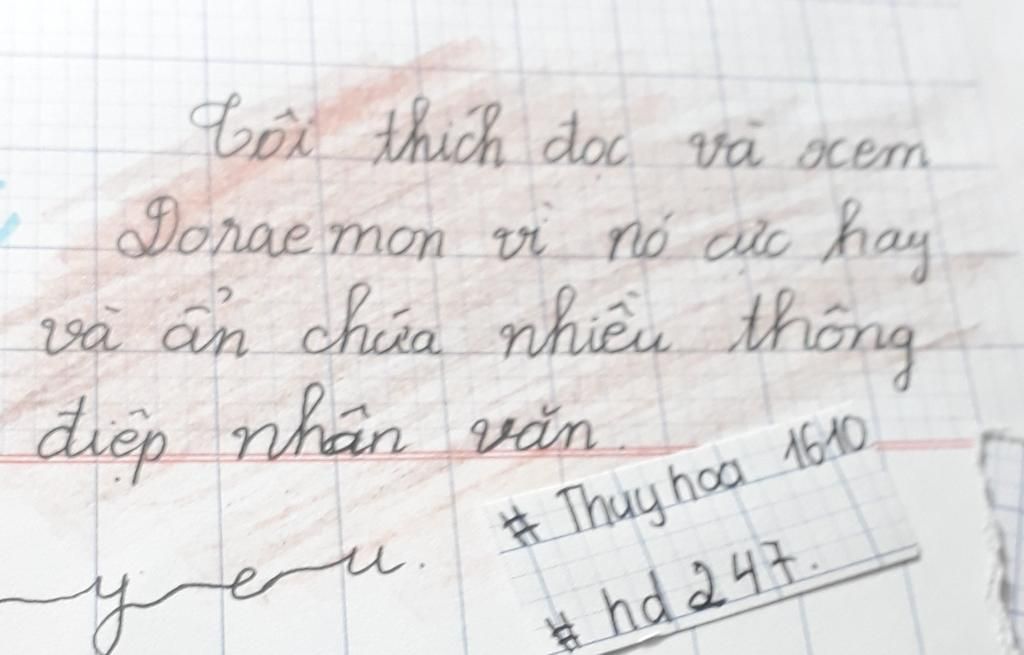 Tôi thích đọc và xem
Doraemon vì nó cực hay
và ẩn chứa nhiều thông
điệp nhân văn.
yeu.
# Thuyhoa 1610
# hd 247.